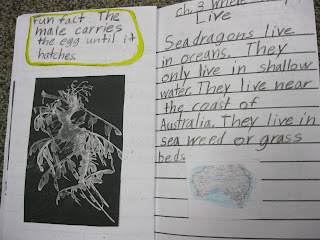 fun fact The
male carries
the egg until it
hatches.
Ch. 3 Where
Live
Sea dragons live
in oceans. They
only live in shallow
water. They live near
the coast of
Australia. They live in
sea weed or grass
beds